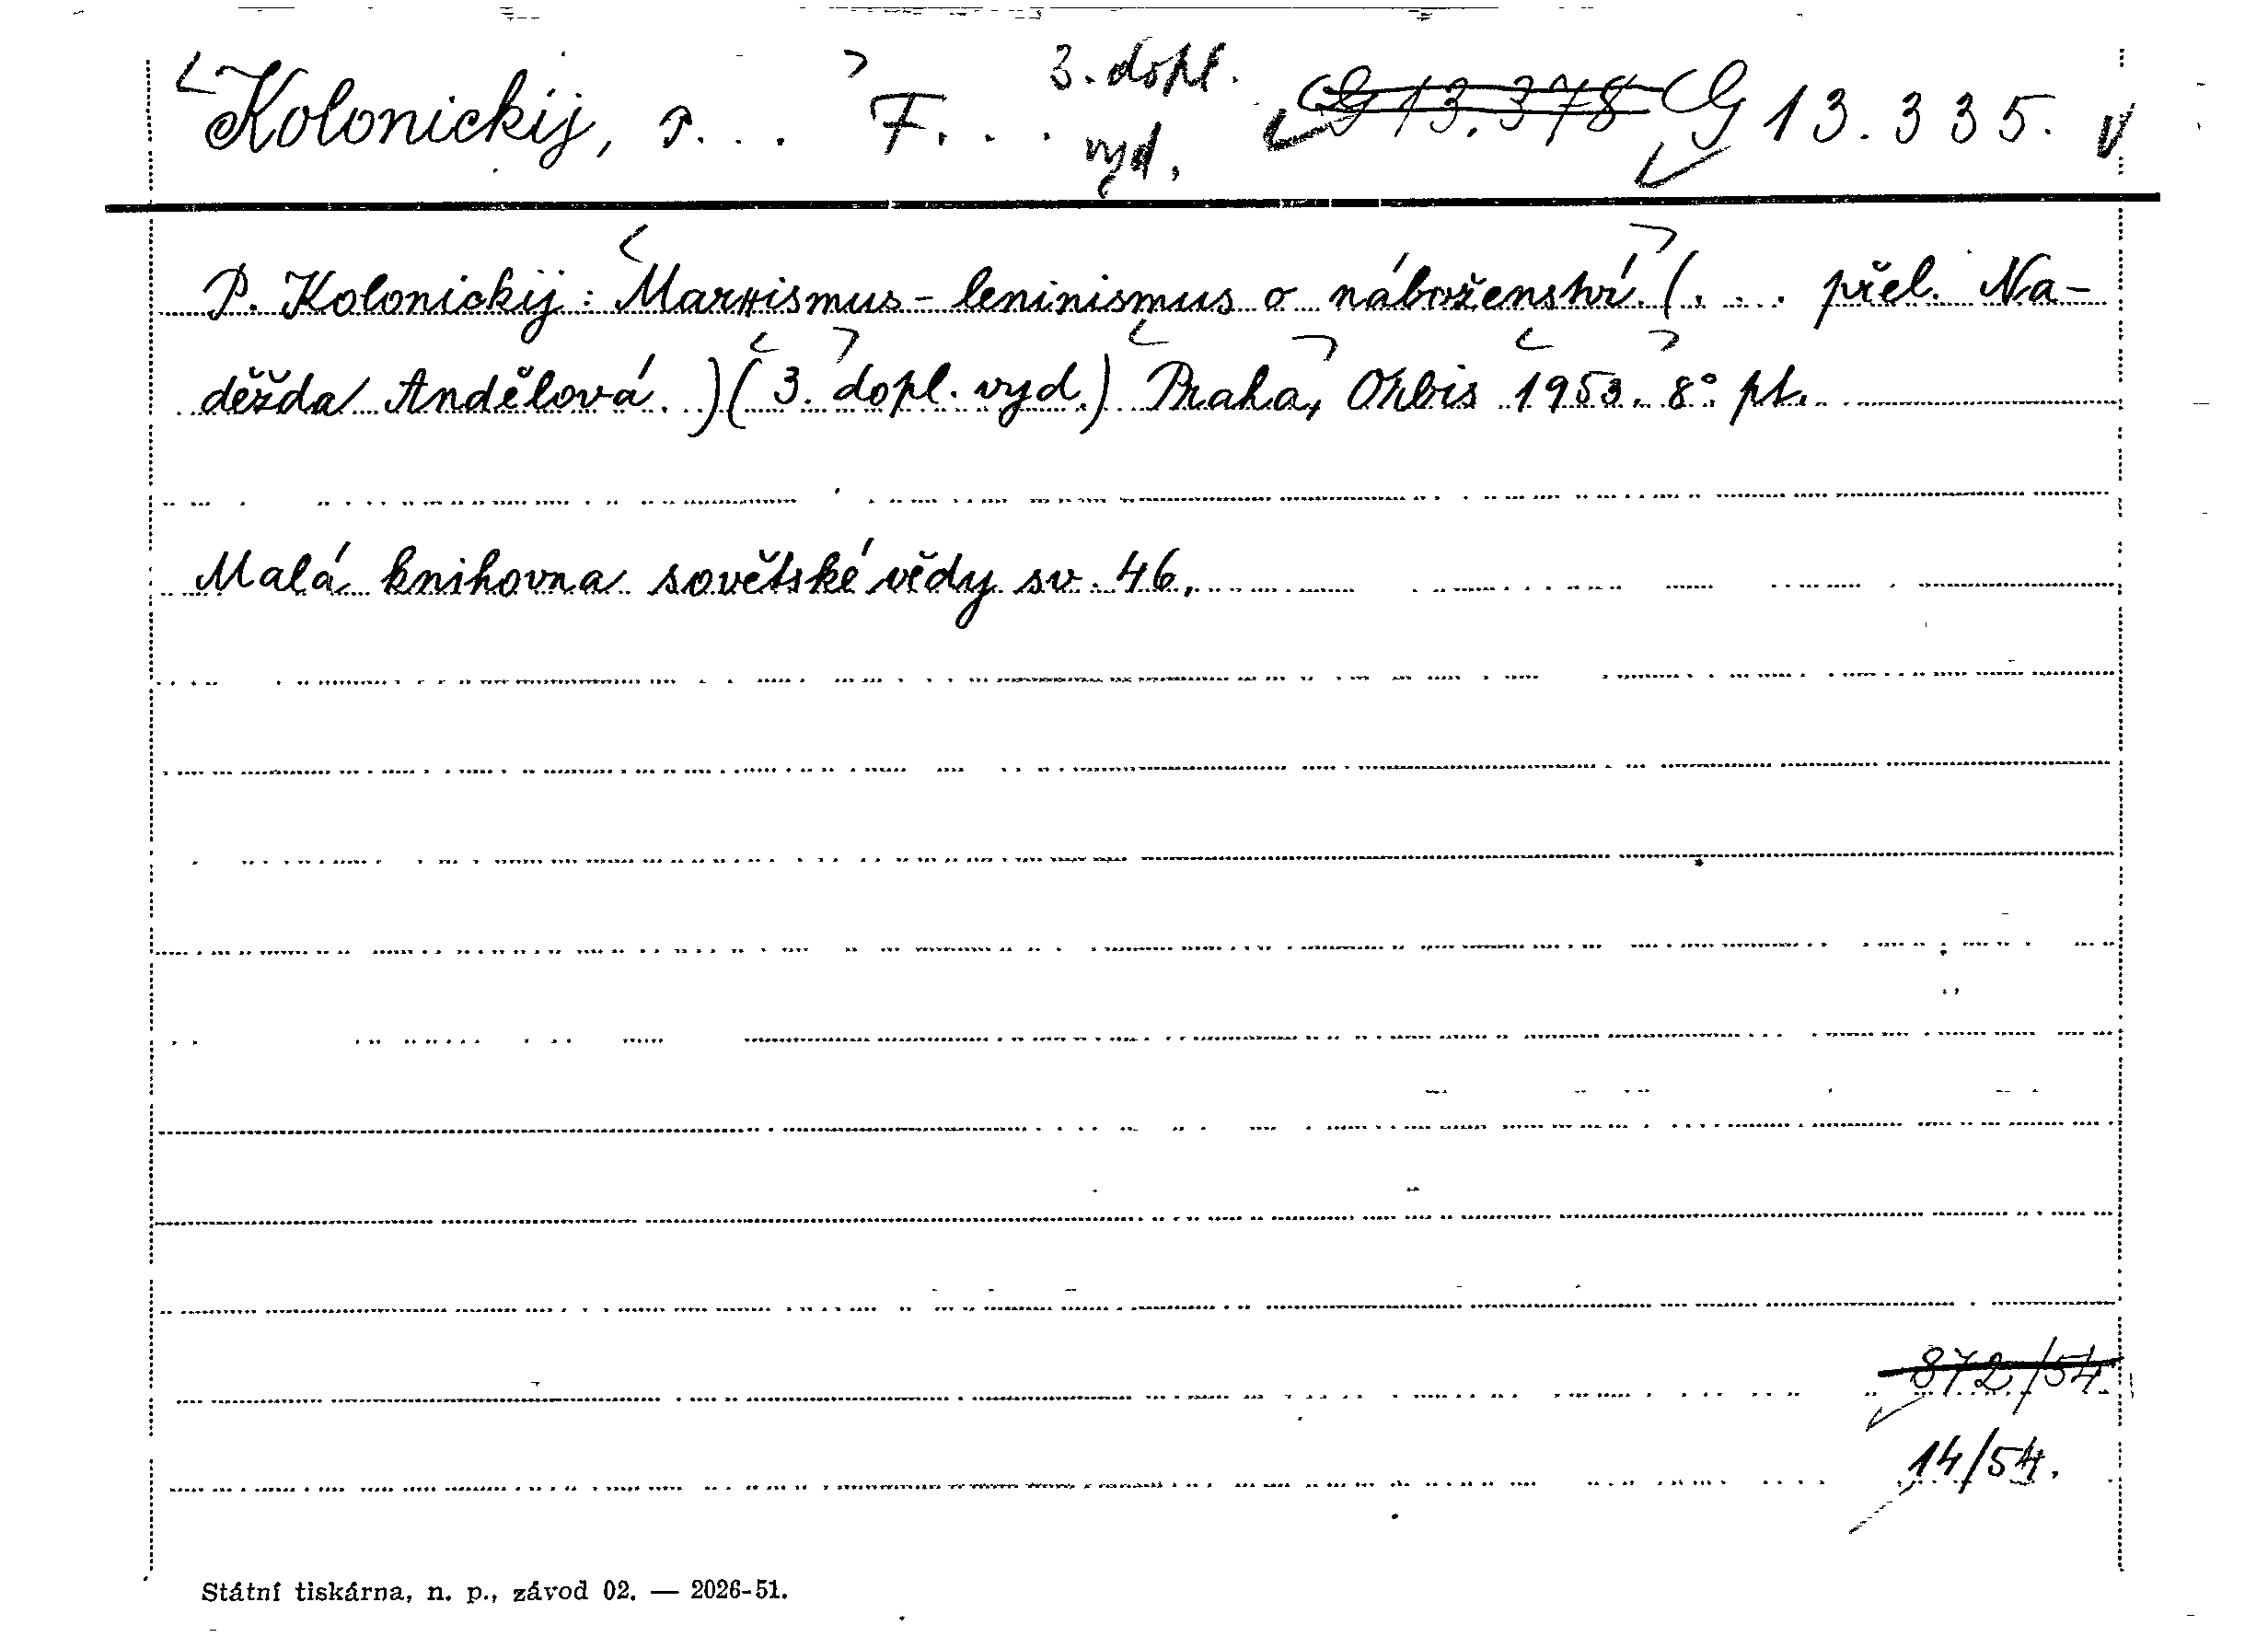 Kolonickij, P... F... 3. dopl. vyd. G 13.378 G 13.335.
P. Kolonickij: Marxismus-leninismus o náboženství. (... přel. Na-
děžda Andělová.) (3. dopl. vyd.) Praha, Orbis 1953. 8° pt.
Malá knihovna sovětské vědy sv. 46.
872/54.
14/54.
Státní tiskárna, n. p., závod 02. — 2026-51.